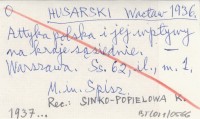 O HUSARSKI Wacław 1936.
Attyka polska i jej wpływy
na kraje sąsiednie.
Warszawa. Ss. 62, il., m. 1.
M. in. Spisz.
Rec.: SINKO-POPIELOWA K.
1937...